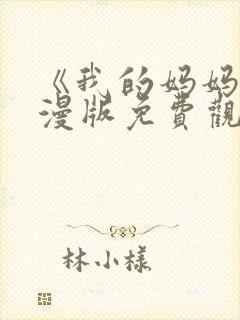 《我的妈妈
漫版免費觀
林小樣